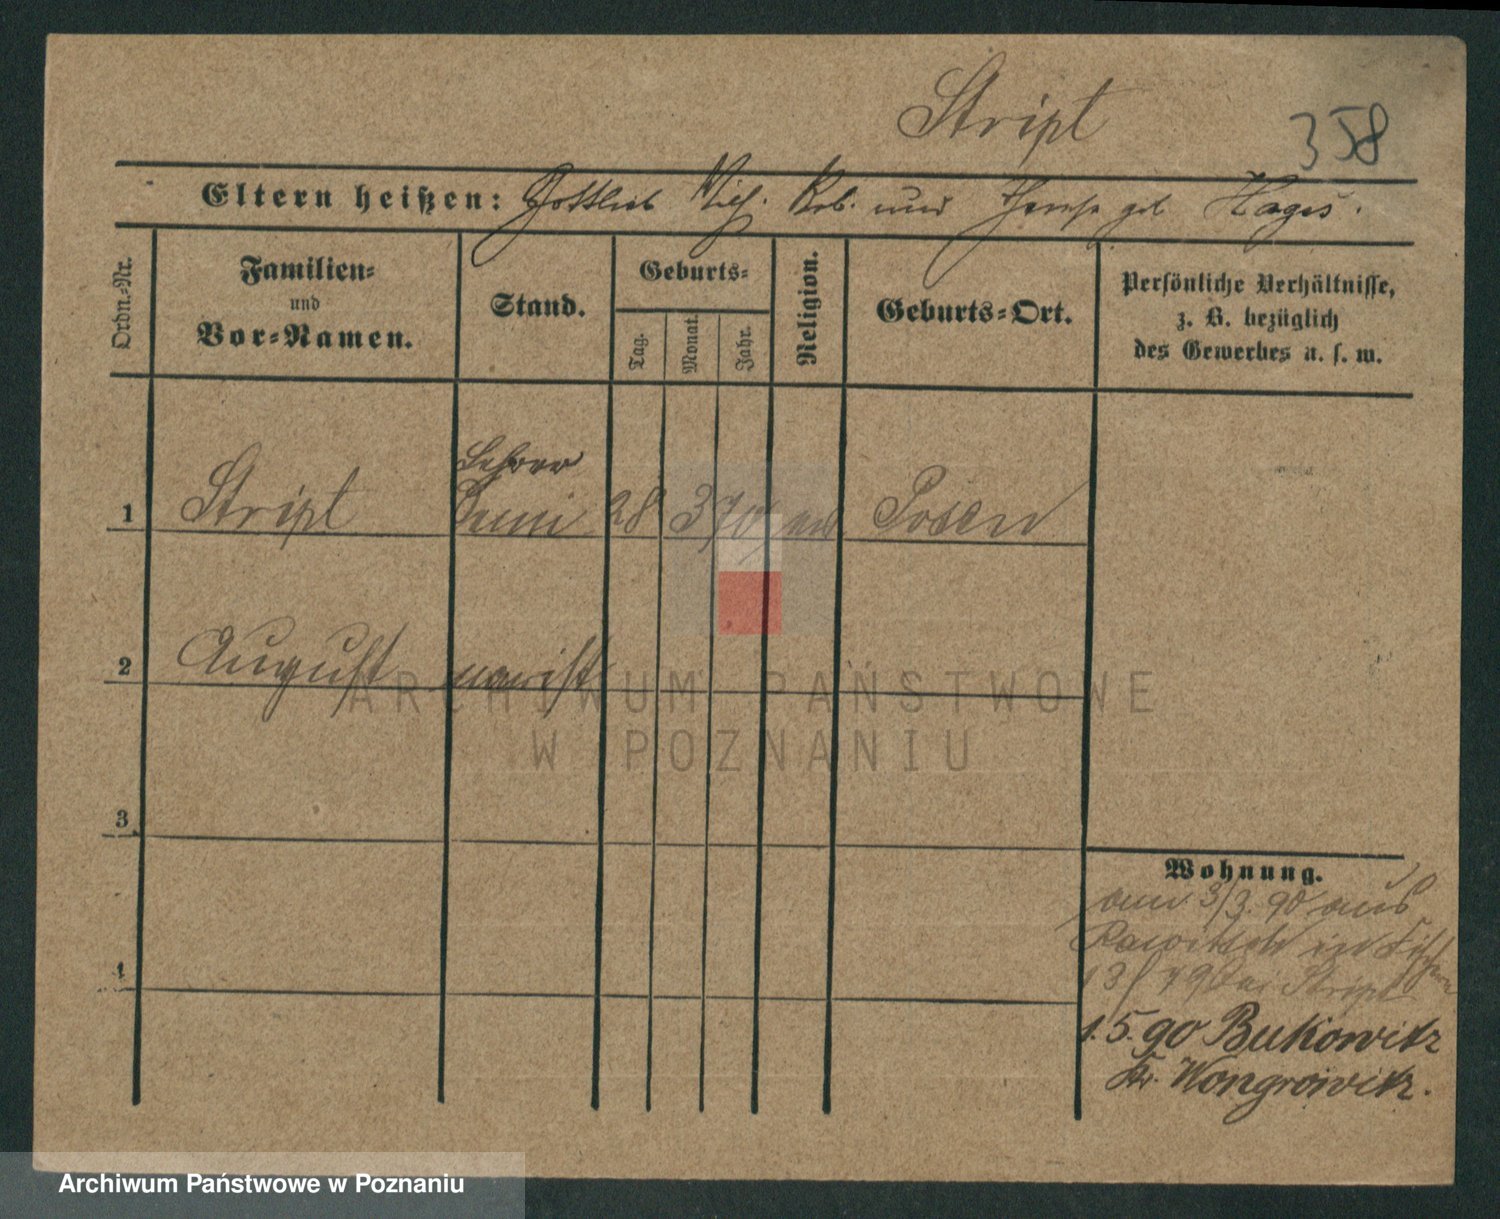 Stript
358
Eltern heißen: Gottlieb Wilh. Rob. und geb. Hages.
Ordn.-Nr.
Familien-
und
Vor-Namen.
Stand.
Geburts-
Tag.
Monat.
Jahr.
Religion.
Geburts-Ort.
Persönliche Verhältnisse,
z. B. bezüglich
des Gewerbes u. s. w.
Lehrer
1 Stript 28 3 70 Posen
2 August
3
4
Wohnung.
am 3/3. 90 aus
Rawitsch in
13/ bei Stript
1.5.90 Bukowitz
Kr. Wongrowitz.
ARCHIWUM PAŃSTWOWE
W POZNANIU
Archiwum Państwowe w Poznaniu